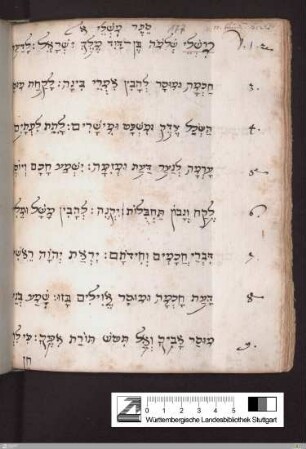 ספר משלי א
משלי שלמה בן דוד מלך ישראל: לדעת
1. 2.
חכמה ומוסר להבין אמרי בינה: לקחת מוסר
3.
השכל צדק ומשפט ומישרים: לתת לפתאים
4.
ערמה לנער דעת ומזמה: ישמע חכם ויוסף
5.
לקח ונבון תחבולות יקנה: להבין משל ומליצה
6.
דברי חכמים וחידתם: יראת יהוה ראשית
7.
דעת חכמה ומוסר אוילים בזו: שמע בני
8.
מוסר אביך ואל תטש תורת אמך: כי לוית
9.
חן
0 1 2 3 4 5
Württembergische Landesbibliothek Stuttgart